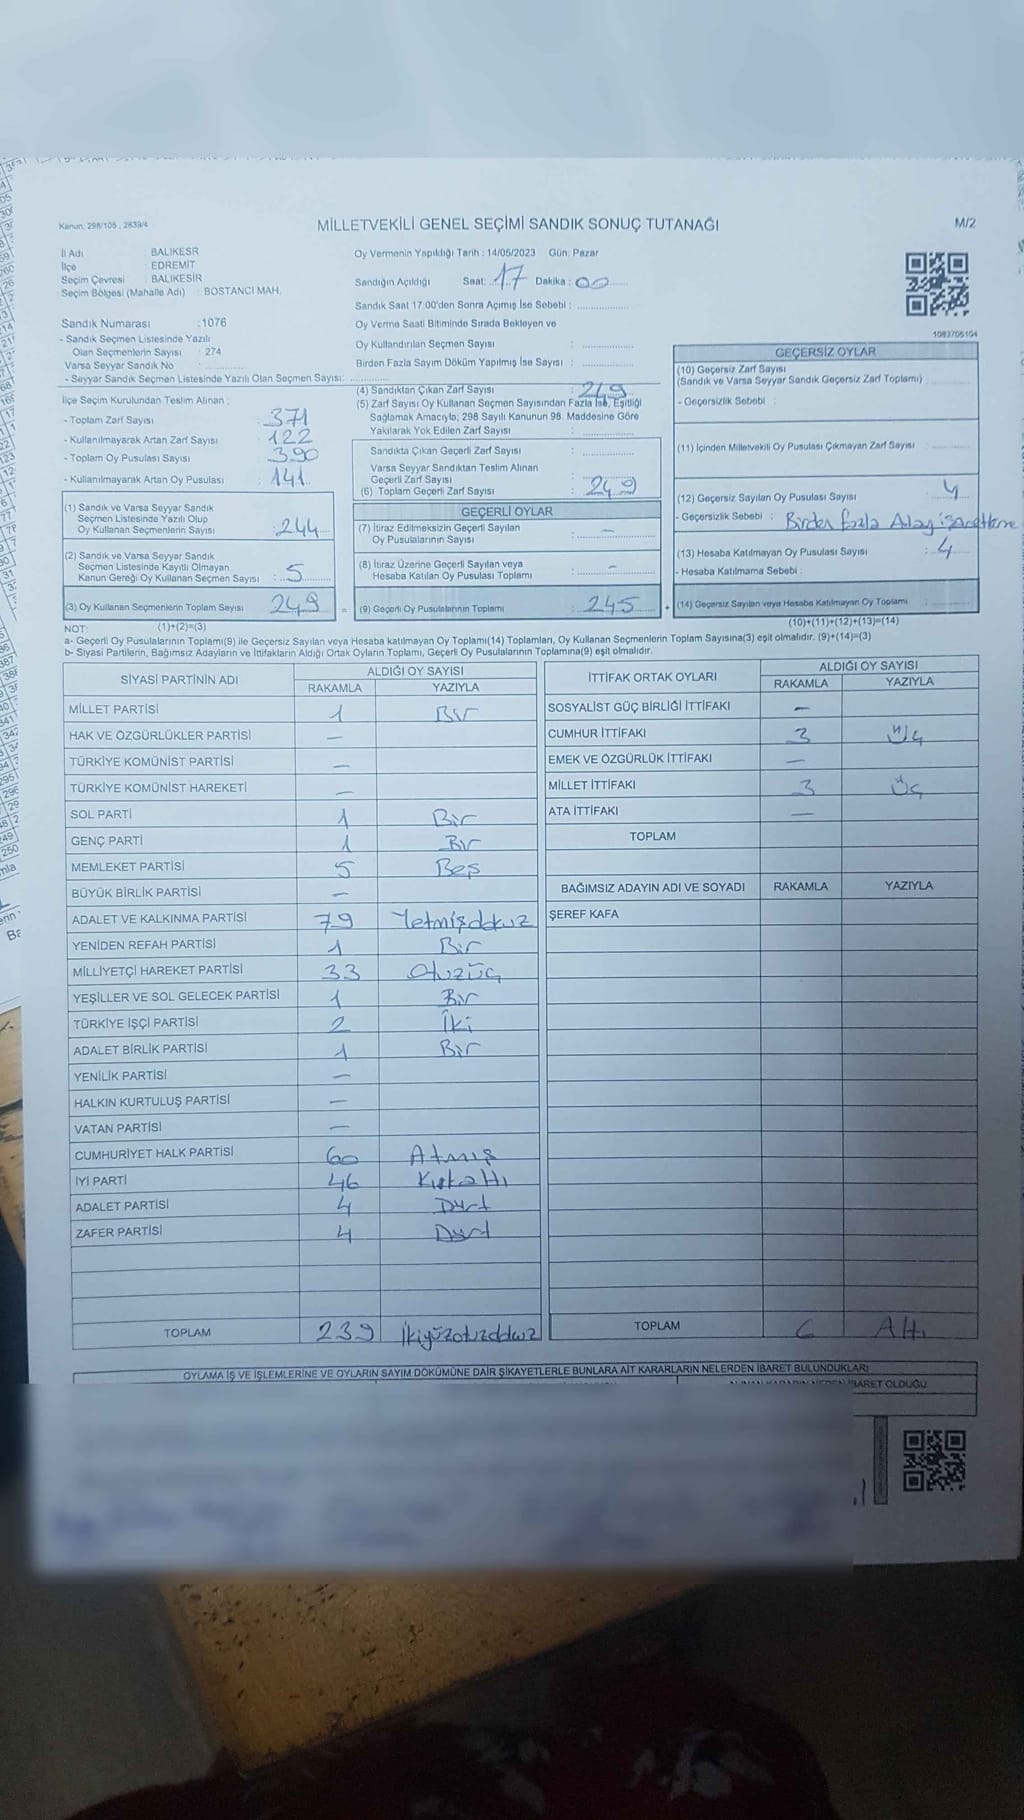 Kanun: 298/105 ; 2839/4
MİLLETVEKİLİ GENEL SEÇİMİ SANDIK SONUÇ TUTANAĞI
M/2
İl Adı : BALIKESR
İlçe : EDREMİT
Seçim Çevresi : BALIKESİR
Seçim Bölgesi (Mahalle Adı) : BOSTANCI MAH.
Sandık Numarası :1076
- Sandık Seçmen Listesinde Yazılı
Olan Seçmenlerin Sayısı : 274
Varsa Seyyar Sandık No :
- Seyyar Sandık Seçmen Listesinde Yazılı Olan Seçmen Sayısı:
İlçe Seçim Kurulundan Teslim Alınan :
- Toplam Zarf Sayısı : 371
- Kullanılmayarak Artan Zarf Sayısı : 122
- Toplam Oy Pusulası Sayısı : 390
- Kullanılmayarak Artan Oy Pusulası : 141
(1) Sandık ve Varsa Seyyar Sandık
Seçmen Listesinde Yazılı Olup
Oy Kullanan Seçmenlerin Sayısı : 244
(2) Sandık ve Varsa Seyyar Sandık
Seçmen Listesinde Kayıtlı Olmayan
Kanun Gereği Oy Kullanan Seçmen Sayısı : 5
(3) Oy Kullanan Seçmenlerin Toplam Sayısı 249 =
(1)+(2)=(3)
Oy Vermenin Yapıldığı Tarih : 14/05/2023 Gün: Pazar
Sandığın Açıldığı Saat: 17 Dakika : 00
Sandık Saat 17:00'den Sonra Açımış İse Sebebi :
Oy Verme Saati Bitiminde Sırada Bekleyen ve
Oy Kullandırılan Seçmen Sayısı :
Birden Fazla Sayım Döküm Yapılmış İse Sayısı :
(4) Sandıktan Çıkan Zarf Sayısı : 249
(5) Zarf Sayısı Oy Kullanan Seçmen Sayısından Fazla İse, Eşitliği
Sağlamak Amacıyla; 298 Sayılı Kanunun 98. Maddesine Göre
Yakılarak Yok Edilen Zarf Sayısı :
Sandıkta Çıkan Geçerli Zarf Sayısı :
Varsa Seyyar Sandıktan Teslim Alınan
Geçerli Zarf Sayısı :
(6) Toplam Geçerli Zarf Sayısı : 249
GEÇERLİ OYLAR
(7) İtiraz Edilmeksizin Geçerli Sayılan
Oy Pusulalarının Sayısı : -
(8) İtiraz Üzerine Geçerli Sayılan veya
Hesaba Katılan Oy Pusulası Toplamı : -
(9) Geçerli Oy Pusulalarının Toplamı : 245 +
1083706104
GEÇERSİZ OYLAR
(10) Geçersiz Zarf Sayısı
(Sandık ve Varsa Seyyar Sandık Geçersiz Zarf Toplamı)
- Geçersizlik Sebebi :
(11) İçinden Milletvekili Oy Pusulası Çıkmayan Zarf Sayısı
(12) Geçersiz Sayılan Oy Pusulası Sayısı : 4
- Geçersizlik Sebebi : Birden fazla Aday işaretleme
(13) Hesaba Katılmayan Oy Pusulası Sayısı : 4
- Hesaba Katılmama Sebebi :
(14) Geçersiz Sayılan veya Hesaba Katılmayan Oy Toplamı
(10)+(11)+(12)+(13)=(14)
NOT:
a- Geçerli Oy Pusulalarının Toplamı(9) ile Geçersiz Sayılan veya Hesaba katılmayan Oy Toplamı(14) Toplamları, Oy Kullanan Seçmenlerin Toplam Sayısına(3) eşit olmalıdır. (9)+(14)=(3)
b- Siyasi Partilerin, Bağımsız Adayların ve İttifakların Aldığı Ortak Oyların Toplamı, Geçerli Oy Pusulalarının Toplamına(9) eşit olmalıdır.
SİYASİ PARTİNİN ADI ALDIĞI OY SAYISI
RAKAMLA YAZIYLA
MİLLET PARTİSİ 1 Bir
HAK VE ÖZGÜRLÜKLER PARTİSİ -
TÜRKİYE KOMÜNİST PARTİSİ -
TÜRKİYE KOMÜNİST HAREKETİ -
SOL PARTİ 1 Bir
GENÇ PARTİ 1 Bir
MEMLEKET PARTİSİ 5 Beş
BÜYÜK BİRLİK PARTİSİ -
ADALET VE KALKINMA PARTİSİ 79 Yetmişdokuz
YENİDEN REFAH PARTİSİ 1 Bir
MİLLİYETÇİ HAREKET PARTİSİ 33 Otuzüç
YEŞİLLER VE SOL GELECEK PARTİSİ 1 Bir
TÜRKİYE İŞÇİ PARTİSİ 2 İki
ADALET BİRLİK PARTİSİ 1 Bir
YENİLİK PARTİSİ -
HALKIN KURTULUŞ PARTİSİ -
VATAN PARTİSİ -
CUMHURİYET HALK PARTİSİ 60 Atmış
İYİ PARTİ 46 Kırkaltı
ADALET PARTİSİ 4 Dört
ZAFER PARTİSİ 4 Dört
TOPLAM 239 İkiyüzotuzdokuz
İTTİFAK ORTAK OYLARI ALDIĞI OY SAYISI
RAKAMLA YAZIYLA
SOSYALİST GÜÇ BİRLİĞİ İTTİFAKI -
CUMHUR İTTİFAKI 3 Üç
EMEK VE ÖZGÜRLÜK İTTİFAKI -
MİLLET İTTİFAKI 3 Üç
ATA İTTİFAKI -
TOPLAM
BAĞIMSIZ ADAYIN ADI VE SOYADI RAKAMLA YAZIYLA
ŞEREF KAFA
TOPLAM 6 Altı
OYLAMA İŞ VE İŞLEMLERİNE VE OYLARIN SAYIM DÖKÜMÜNE DAİR ŞİKAYETLERLE BUNLARA AİT KARARLARIN NELERDEN İBARET BULUNDUKLARI
İBARET OLDUĞU